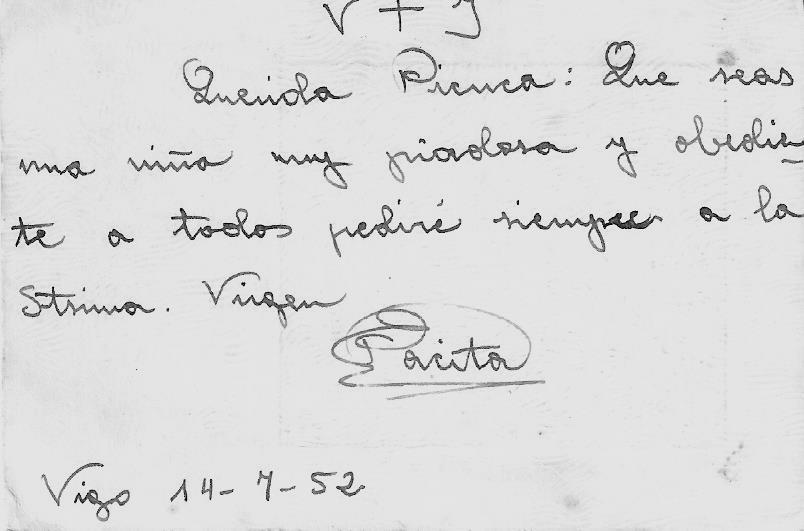 V + J
Querida Picuca: Que seas
una niña muy piadosa y obedien
te a todos pediré siempre a la
Stsima. Virgen
Pacita
Vigo 14-7-52